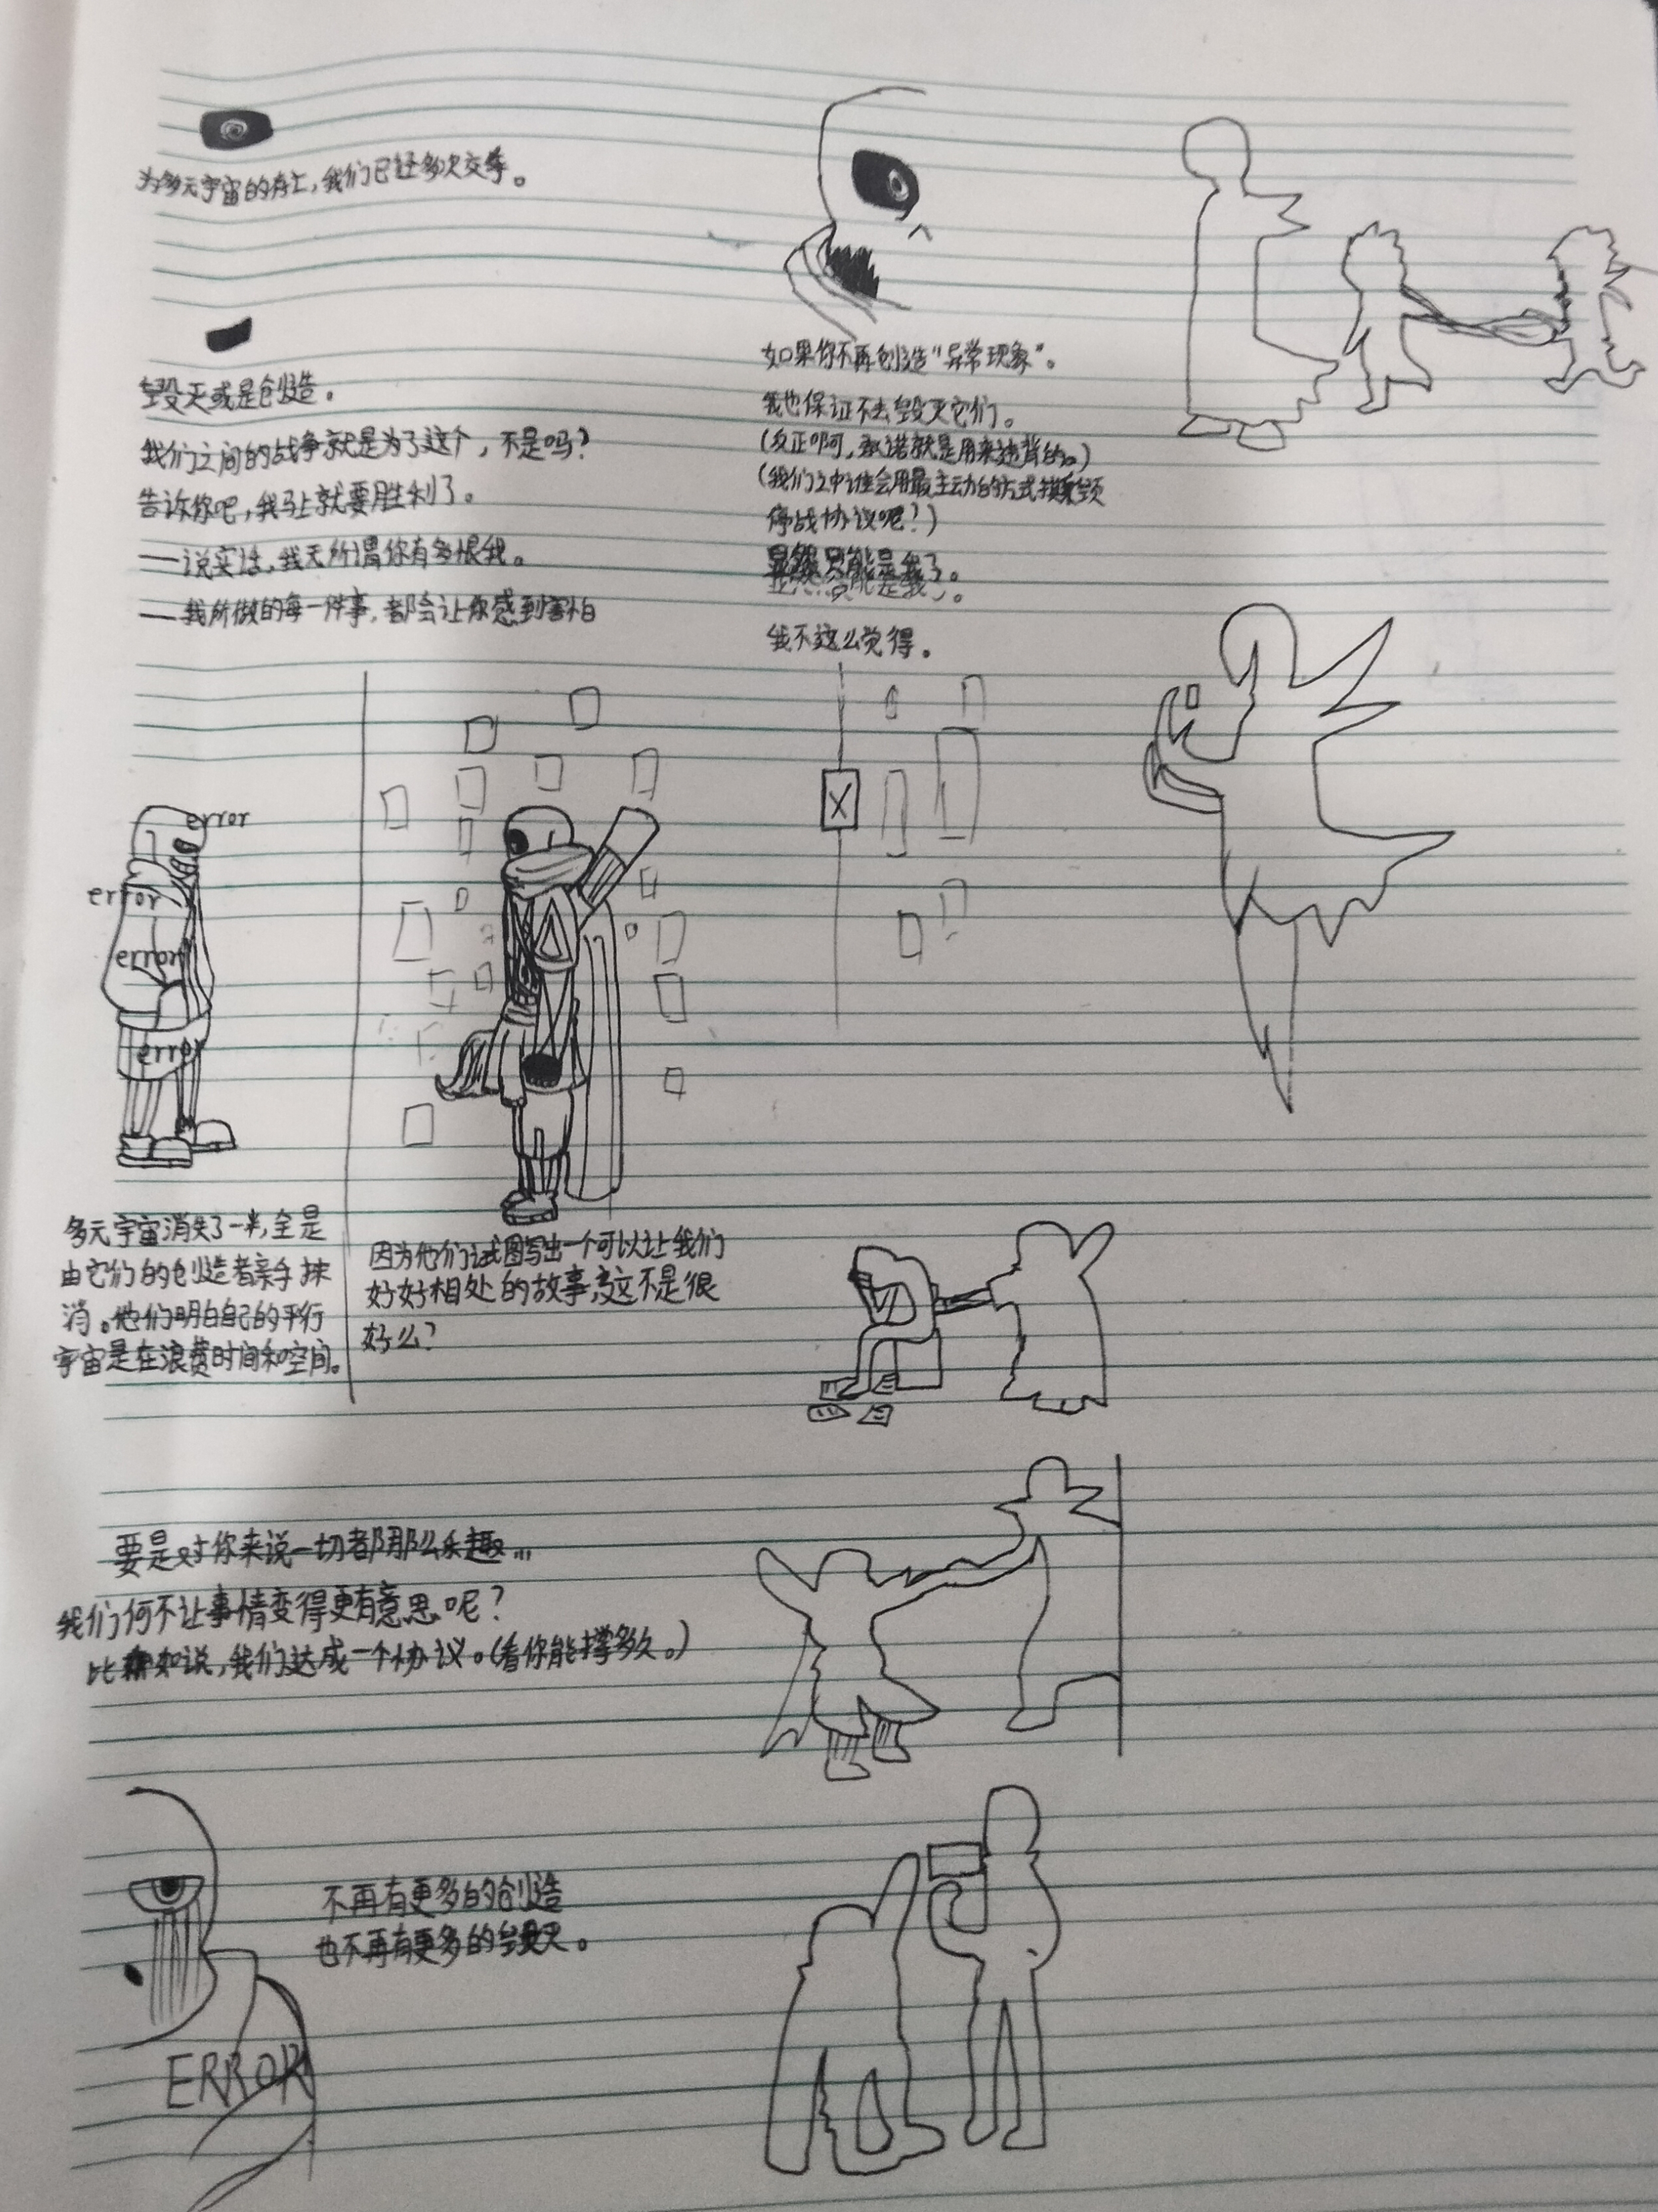 为多元宇宙的存亡,我们已经多次交锋。
毁灭或是创造。
我们之间的战争就是为了这个,不是吗?
告诉你吧,我马上就要胜利了。
——说实话,我无所谓你有多恨我。
——我所做的每一件事,都会让你感到害怕
error
error
error
error
多元宇宙消失了一半,全是
由它们的创造者亲手抹
消。他们明白自己的平行
宇宙是在浪费时间和空间。
因为他们试图写出一个可以让我们
好好相处的故事,这不是很
好么?
要是对你来说一切都那么乐趣...
我们何不让事情变得更有意思呢?
比如说,我们达成一个协议。(看你能撑多久。)
不再有更多的创造
也不再有更多的毁灭。
ERROR
如果你不再创造"异常现象"。
我也保证不去毁灭它们。
(反正啊,承诺就是用来违背的。)
(我们之中谁会用最主动的方式撕毁
停战协议呢?)
显然只能是我了。
我不这么觉得。
X